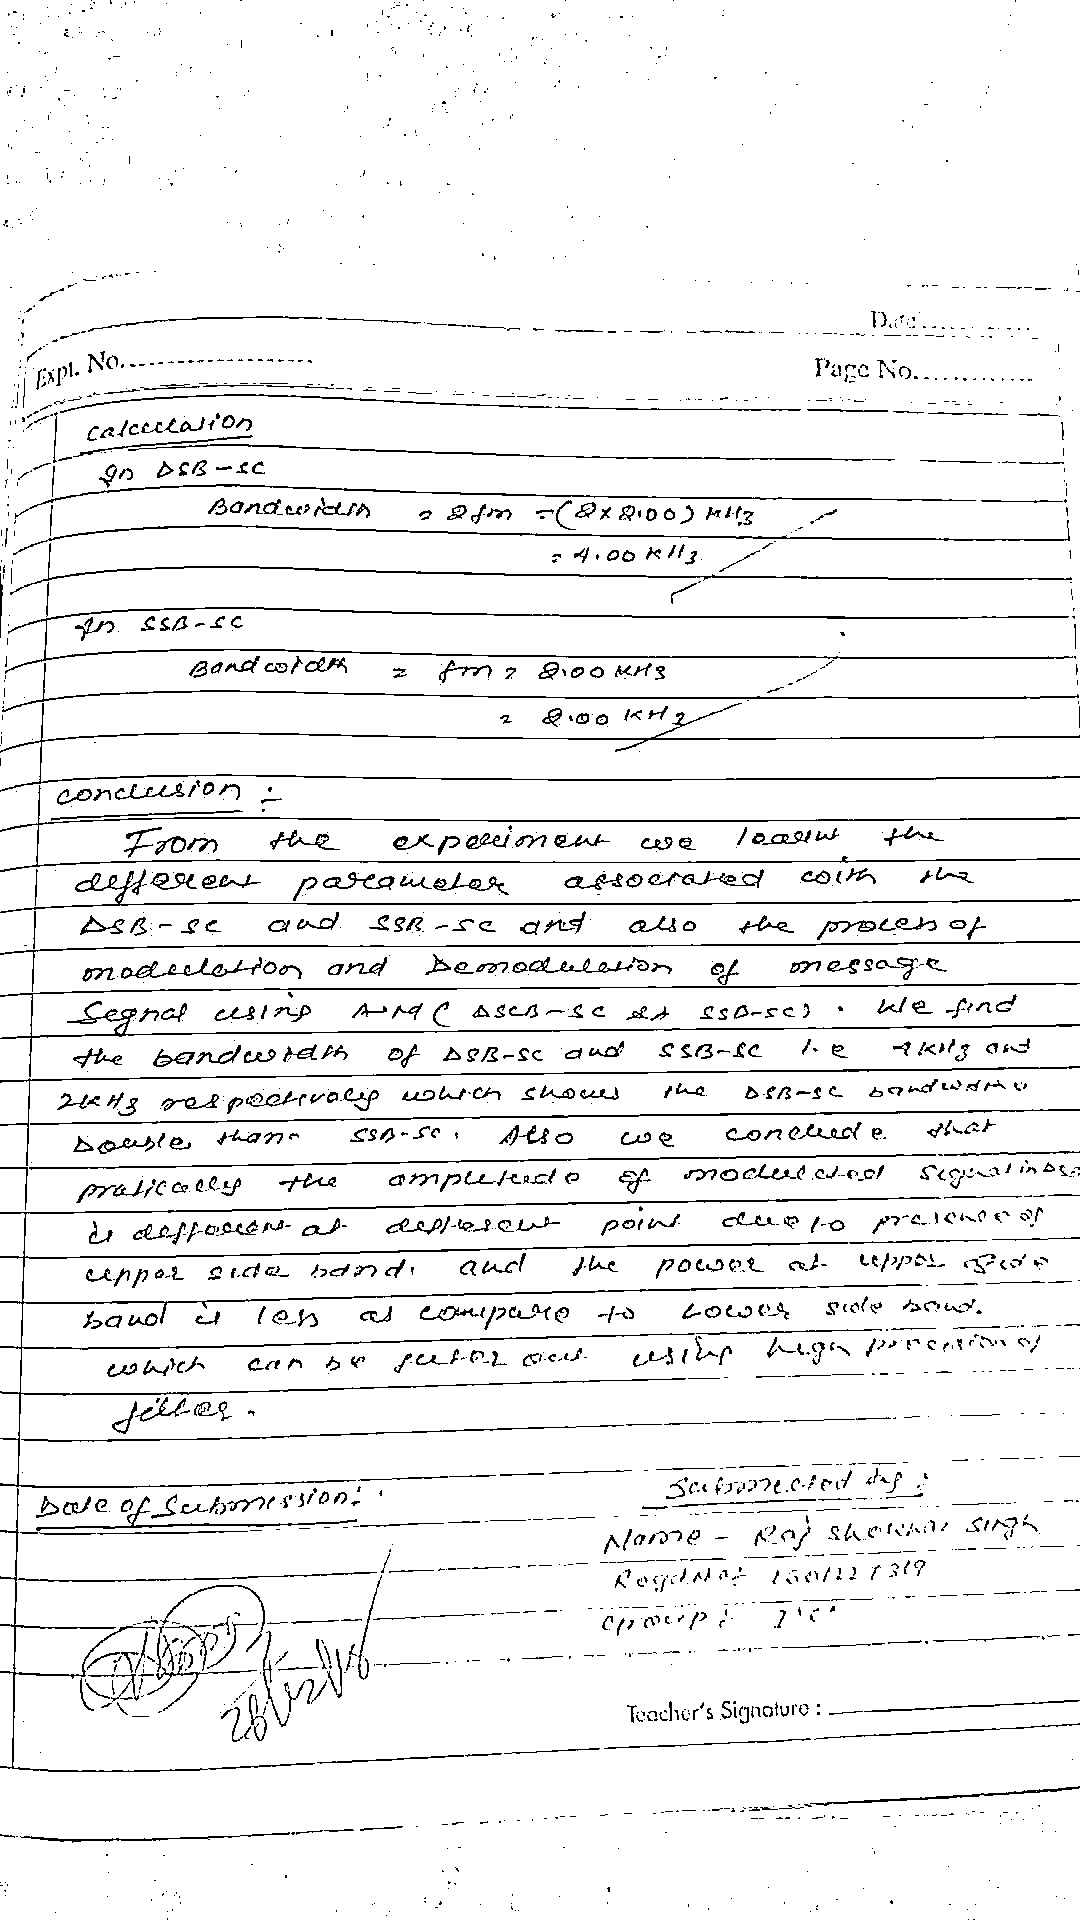 Date..............
Expt. No......................
Page No..............
Calculation
In DSB-SC
Bandwidth = 2fm = (2×2.00) KHz
= 4.00 KHz
In SSB-SC
Bandwidth = fm = 2.00 KHz
= 2.00 KHz
Conclusion :-
From the experiment we learnt the
different parameter associated with the
DSB-SC and SSB-SC and also the process of
modulation and Demodulation of message
Signal using AM ( DSB-SC SSB-SC). We find
the bandwidth of DSB-SC and SSB-SC i.e 4KHz and
2KHz respectively which shows the DSB-SC bandwidth
Double than SSB-SC. Also we conclude that
pratically the amplitude of modulated signal in
is different at different point due to presence of
upper side band. and the power at upper side
band is less as compare to Lower side band.
which can be filter out using high precision of
filter.
Date of Submission:
Submitted by :
Name - Raj Shekhar Singh
Regd No:
Group :
28/12/
Teacher's Signature :